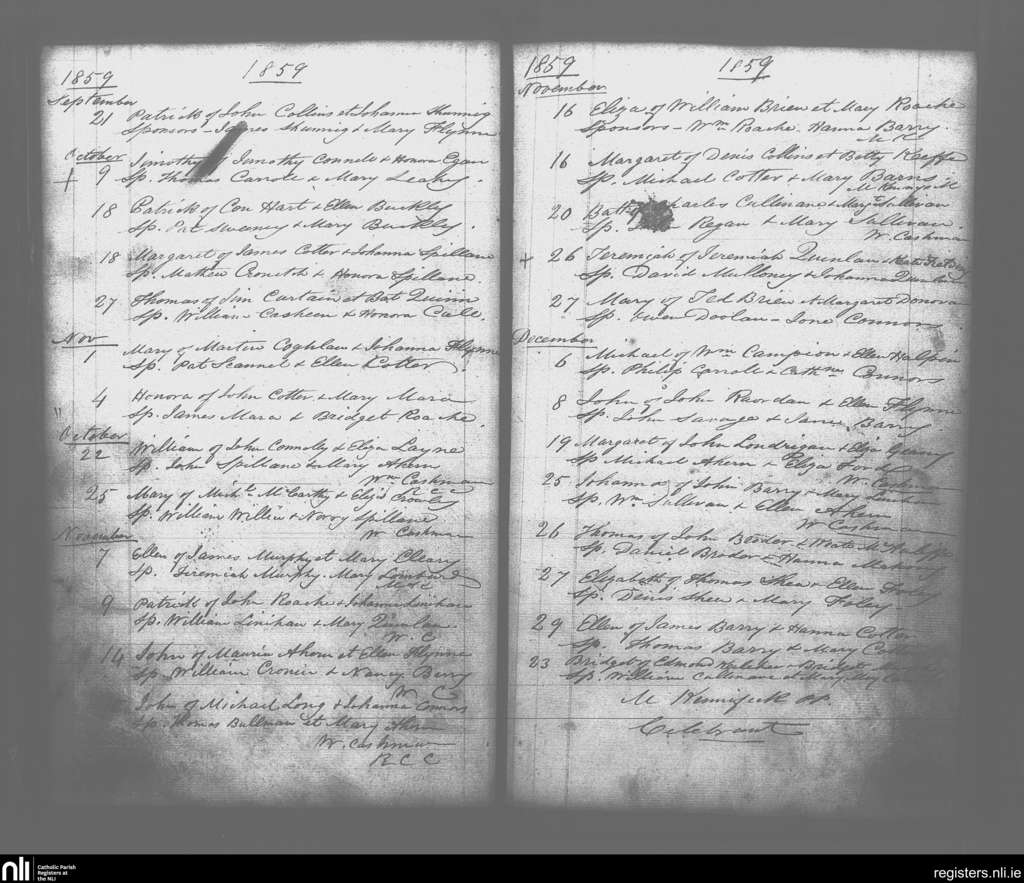 1859
1859
September
21 Patrick of John Collins et Johanna
Sponsors - James & Mary Flynne
October
9 Timothy of Timothy Connele & Honora Egan
Sp. Thomas Carrole & Mary Leahy.
18 Patrick of Con Hart & Ellen Buckley
Sp. Pat Sweeney & Mary Buckley.
18 Margaret of James Cotter & Johanna Spillane
Sp. Mathew & Honora Spillane
27 Thomas of Jim Curtain et Bat Quinn
Sp. William Casheen & Honora Call.
Nov
1 Mary of Martin Coghlan & Johanna Flynne
Sp. Pat Scannel & Ellen Kotter
4 Honora of John Cotter & Mary Mara
Sp. James Mara & Bridget Roache.
October
22 William of John Connolly & Eliza Layne
Sp. John Spillane & Mary Ahern
Wm Cashman
25 Mary of Michl McCarthy & Eliz.
Sp. William Willis & Norry Spillane
W Cashman
November
7 Ellen of James Murphy et Mary Cleary
Sp. Jeremiah Murphy. Mary Lombard
9 Patrick of John Roache & Johanna Linihan
Sp. William Linihan & Mary Quinlan
W. C
14 John of Maurice Ahern et Ellen Flynne
Sp William Cronin & Nancy Berry
W C
John of Michael Long & Johanna Connors
Sp. Thomas Bullman et Mary Ahern
W. Cashman
R C C
1859
1859
November
16 Eliza of William Brien et Mary Roache
Sponsors - Wm Roache. Hanna Barry.
M K
16 Margaret of Denis Collins et Betty Keeffe
Sp. Michael Cotter & Mary Barns
20 Charles Cullinane & Mary Sullivan
Sp. Regan & Mary Sullivan.
W. Cashman
26 Jeremiah of Jeremiah Quinlan &
Sp. David Mulloney & Johanna Quinlan
27 Mary of Ted Brien & Margaret Donovan
Sp. Owen Doolan - Jone Connors
December
6 Michael of Wm Campion & Ellen Halpin
Sp. Philip Carrole & Cathne Connors
8 John of John Riordan & Ellen Flynne
Sp. John Savage & Barry.
19 Margaret of John Londrigan & Eliza Geary
Sp Michael Ahern & Eliza Ford
W. Cashman
25 Johanna of John Barry & Mary
Sp. Wm Sullivan & Ellen Ahern
W Cashman
26 Thomas of John Broder &
Sp. Daniel Broder & Hanna Mahony
27 Elizabeth of Thomas Shea & Ellen Foley
Sp. Denis Shea & Mary Foley
29 Ellen of James Barry & Hanna Cotter
Sp. Thomas Barry & Mary
23 Bridget of Edmond & Bridget
Sp. William Cullinane et Mary
M Kennifeck PP
Celebrant
nli
Catholic Parish
Registers at
the NLI
registers.nli.ie